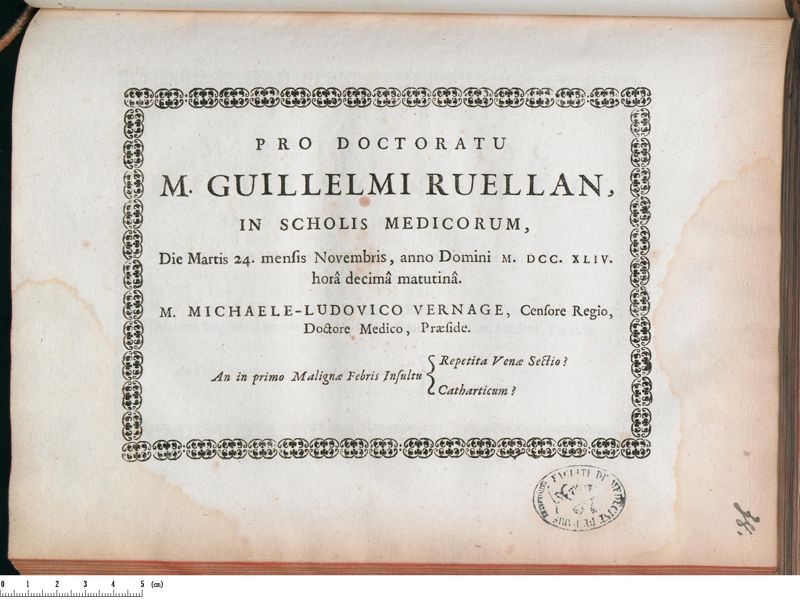 PRO DOCTORATU
M. GUILLELMI RUELLAN,
IN SCHOLIS MEDICORUM,
Die Martis 24. mensis Novembris, anno Domini M. DCC. XLIV.
horâ decimâ matutinâ.
M. MICHAELE-LUDOVICO VERNAGE, Censore Regio,
Doctore Medico, Præside.
An in primo Malignæ Febris Insultu { Repetita Venæ Sectio?
Catharticum?
FACULTÉ DE MÉDECINE DE PARIS
0 1 2 3 4 5 (cm)